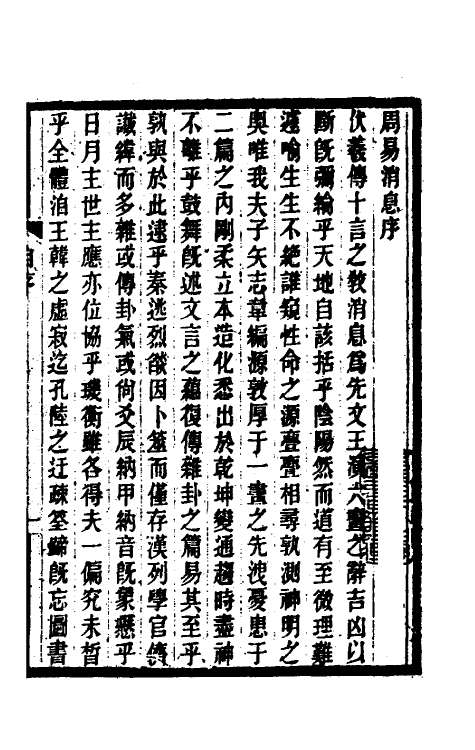 周易消息序
伏羲傳十言之敎消息爲先文王演六畫之辭吉凶以
斷旣彌綸乎天地自該括乎陰陽然而道有至微理難
遽喻生生不絶誰窺性命之源亹亹相尋孰測神明之
奧唯我夫子矢志韋編源敦厚于一畫之先洩憂患于
二篇之內剛柔立本造化悉出於乾坤變通趨時盡神
不離乎鼓舞旣述文言之蘊復傳雜卦之篇易其至乎
孰與於此逮乎秦逃烈燄因卜筮而僅存漢列學官儕
讖緯而多雜或傳卦氣或尙爻辰納甲納音旣象懸乎
日月主世主應亦位協乎璣衡雖各得夫一偏究未晳
乎全體洎王韓之虛寂迄孔陸之迂疎筌蹄旣忘圖書